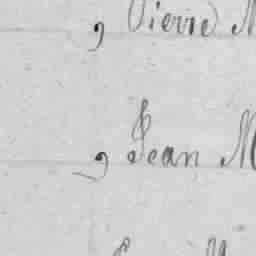 , Pierre M
, Jean M